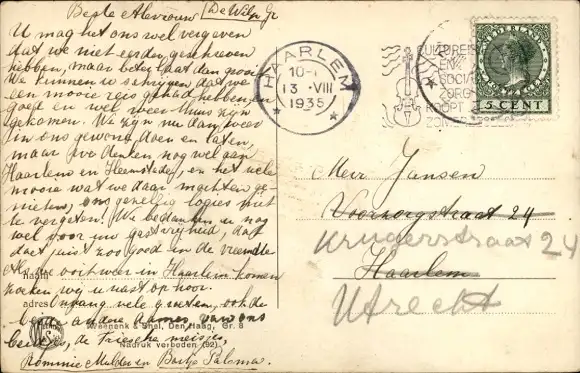 Beste Mevrouw De Wilp Gr
U mag het ons wel vergeven
dat we niet eerder geschreven
hebben, maar beter laat dan nooit.
We kunnen u schrijven dat we
een mooie reis gehad hebben en
goed en wel weer thuis zijn
gekomen. We zijn nu dan weer
in ons gewone doen en laten,
maar we denken nog wel aan
Haarlem en Heemstede, en het vele
moois wat we daar mochten ge-
nieten, ons gezellig logies niet
te vergeten! We bedanken u nog
wel voor uw gastvrijheid, dat
doet juist zoo goed in de vreemde
als we ooit weer in Haarlem komen
zoeken wij u vast op hoor.
Naam
adres
Ontvang vele groeten, ook de
andere dames van ons
beiden, de Friesche meisjes,
Rommie Mulder en Bartje Palsma.
Weenenk & Snel, Den Haag, Gr. 8
Nadruk verboden (92)
HAARLEM
10-
13 · VIII
1935
BUITEN
EN
SOCIALE
ZORG
KOOPT
ZOMER
NEDERLAND
5 CENT
Mevr Jansen
Voorzorgstraat 24
Krugerstraat 24
Haarlem
Utrecht